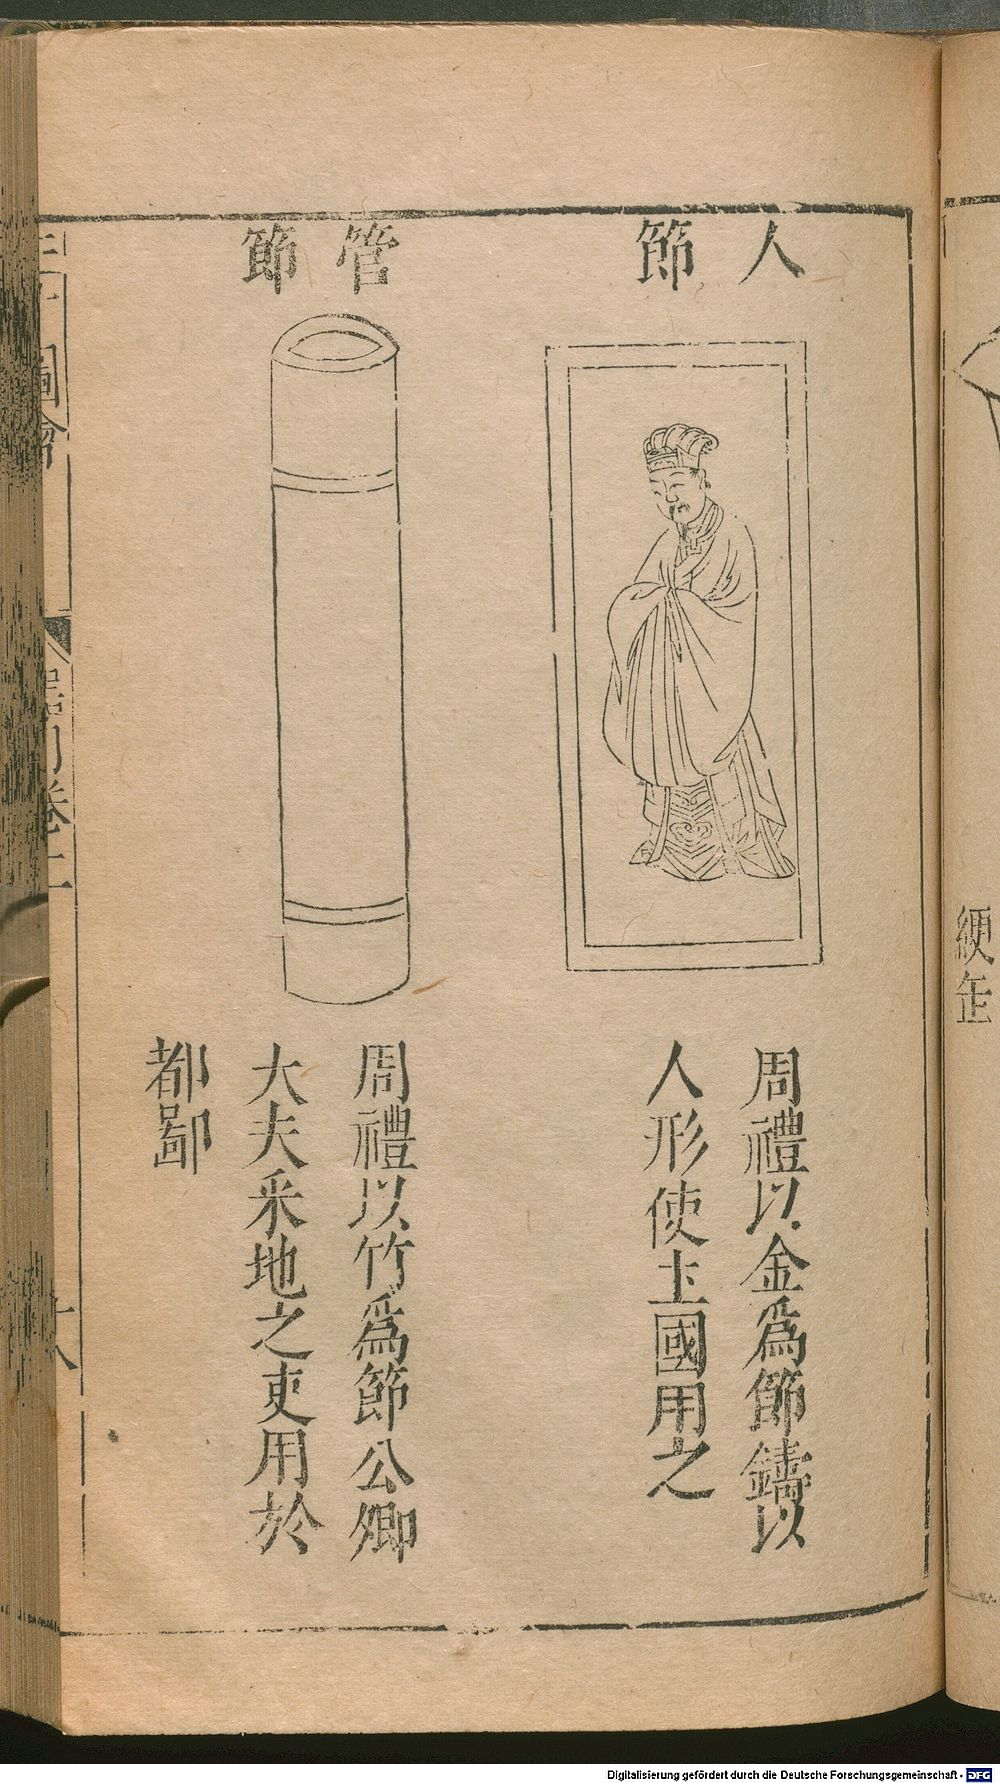 人
節
周禮以金爲節鑄以
人形使土國用之
管
節
周禮以竹爲節公卿
大夫采地之吏用於
都鄙
圖會
器用卷十二
綆缶
Digitalisierung gefördert durch die Deutsche Forschungsgemeinschaft - DFG